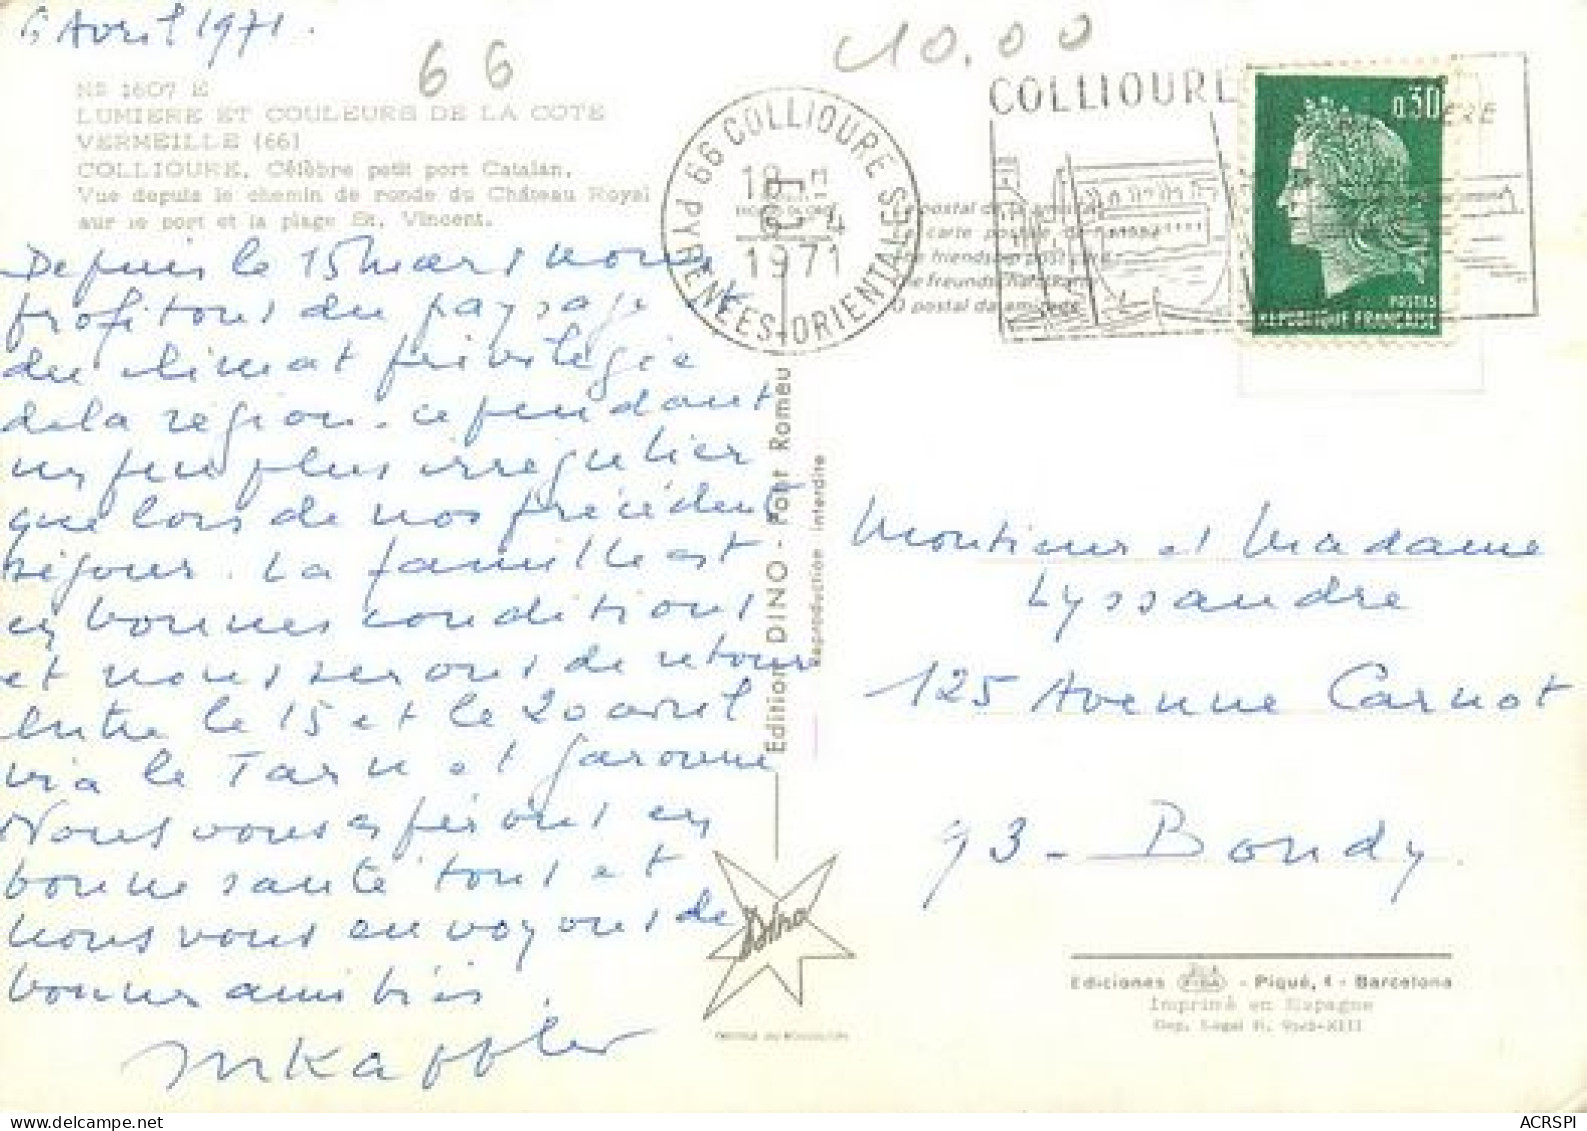 6 Avril 1971.
66
10.00
NS 1607 E
LUMIERE ET COULEURS DE LA COTE
VERMEILLE (66)
COLLIOURE. Célèbre petit port Catalan.
Vue depuis le chemin de ronde du Château Royal
sur le port et la plage St. Vincent.
66 COLLIOURE
PYRENEES-ORIENTALES
18 H
6 - 4
1971
COLLIOURE
0.30
POSTES
REPUBLIQUE FRANÇAISE
Depuis le 15 mars nous
profitons du paysage
du climat privilégié
de la région. cependant
un peu plus irrégulier
que lors de nos précédents
séjour. La famille est
en bonnes conditions
et nous serons de retour
entre le 15 et le 20 avril
via le Tarn et Garonne
Nous vous espérons en
bonne santé tous et
nous vous envoyons de
bonnes amitiés.
Edition DINO - Font Romeu
Reproduction interdite
Dino
Monsieur et Madame
Lyssandre
125 Avenue Carnot
93 - Bondy.
Ediciones FISA - Piqué, 4 - Barcelona
Imprimé en Espagne
ACRSPI